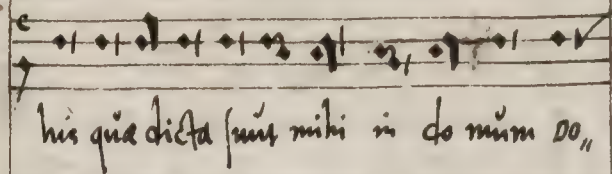 his quæ dicta sunt mihi in do mum Do„